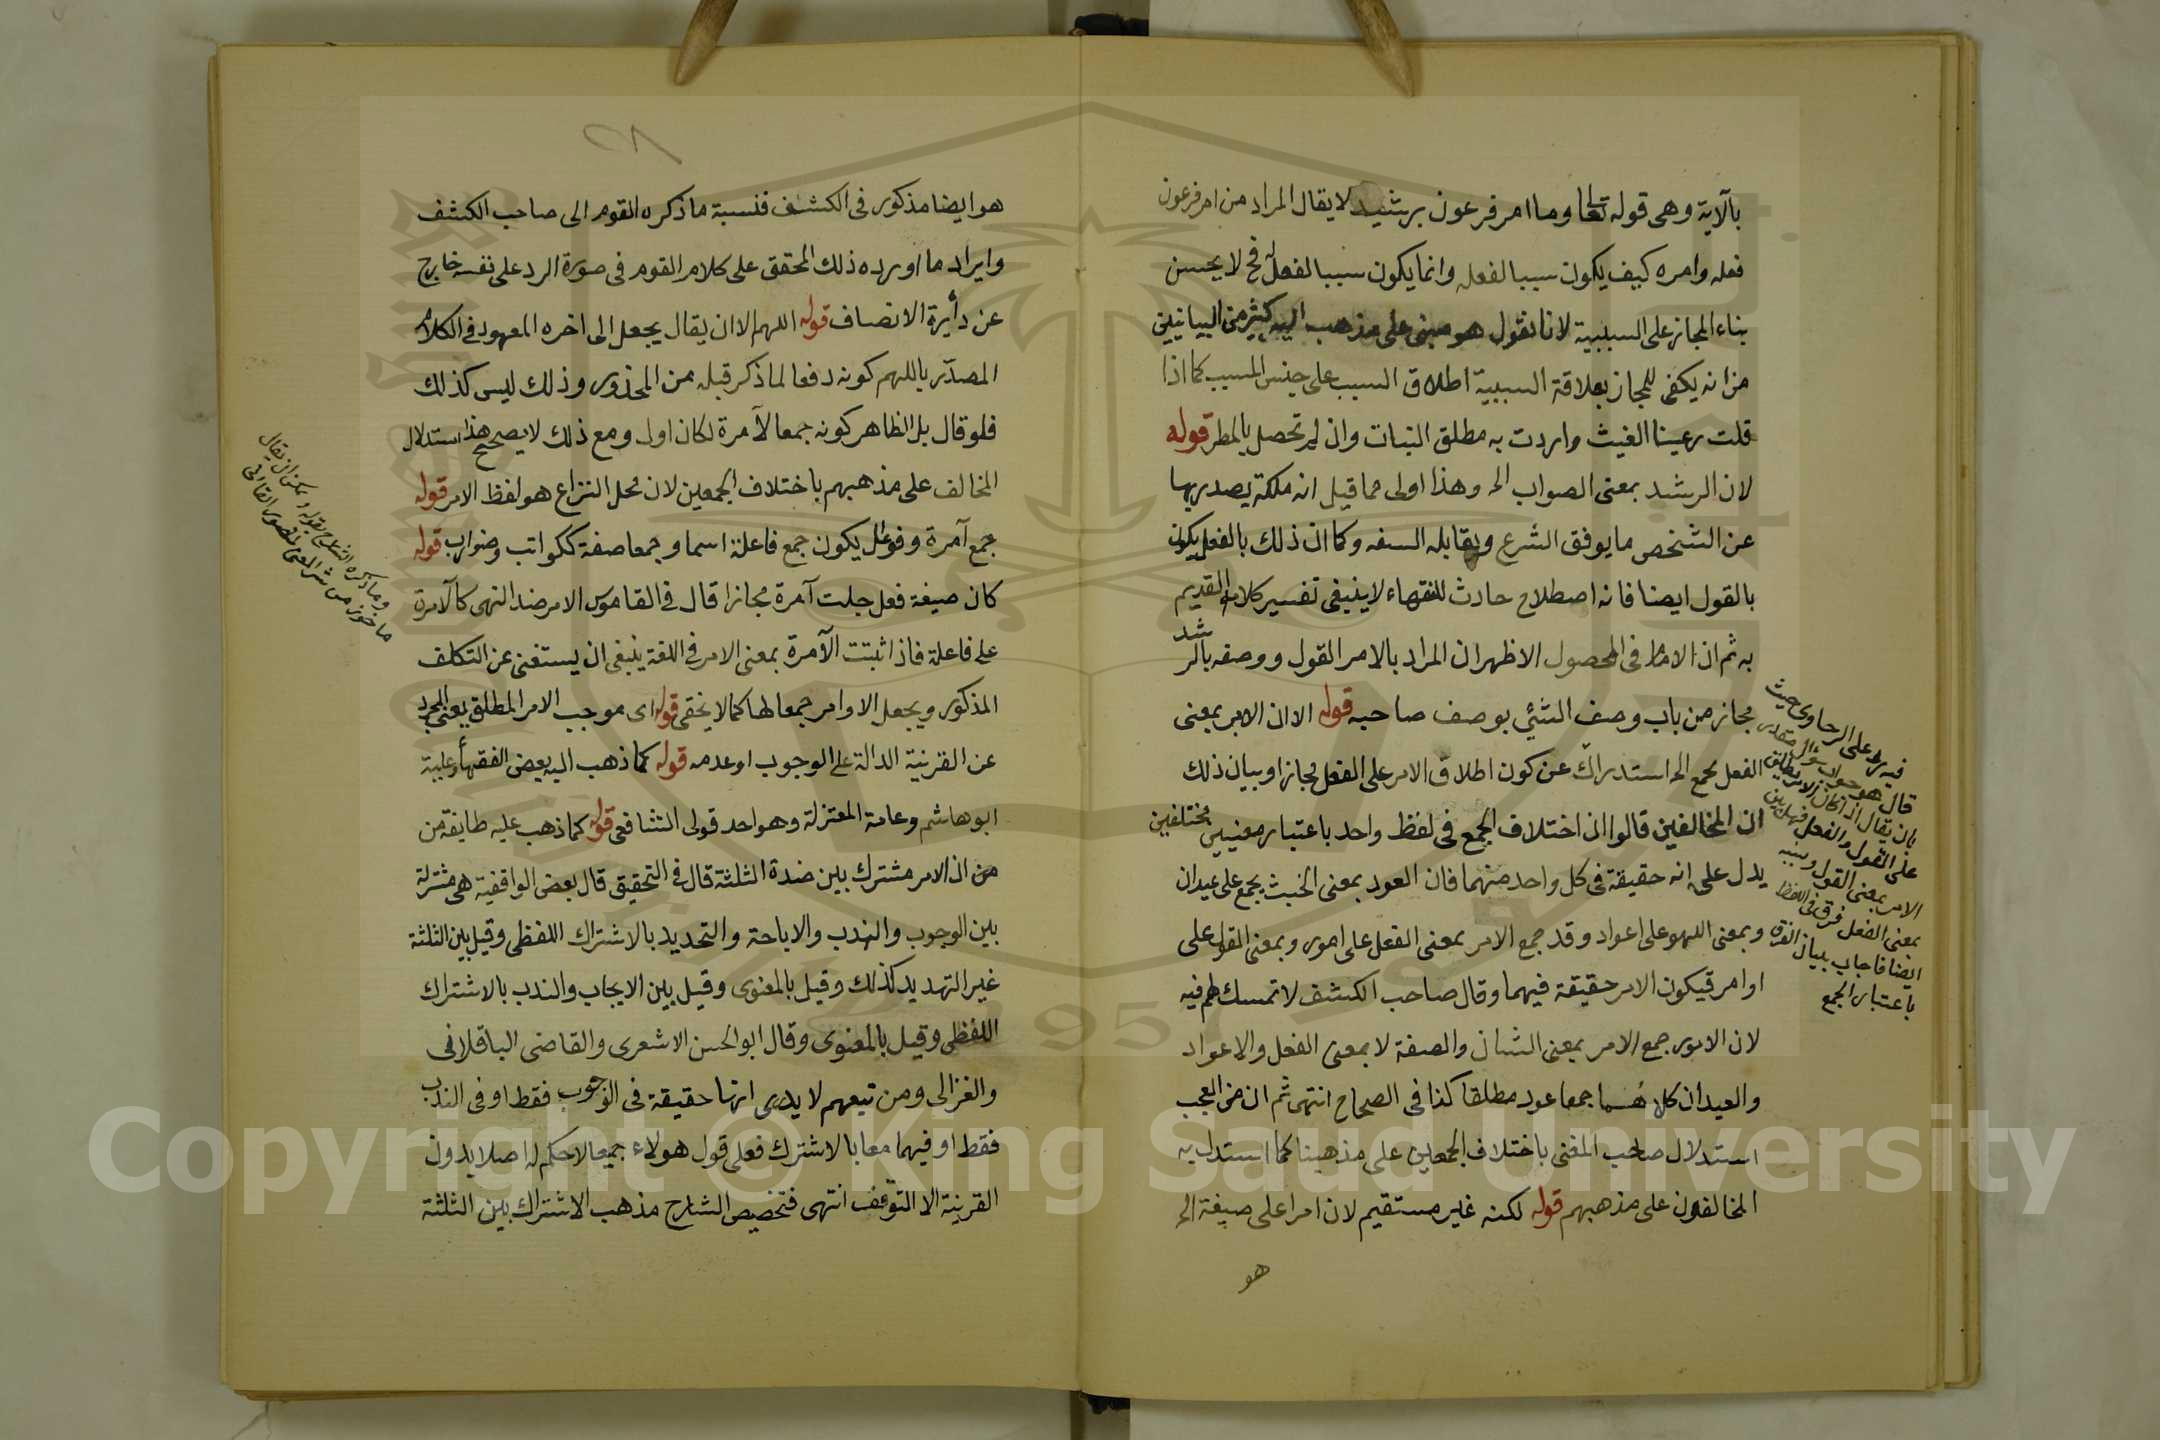 بالآية وهى قوله تعالى وما امر فرعون برشيد لا يقال المراد من امر فرعون
فعله وامره كيف يكون سببا لفعله وانما يكون سببا لفعل فح لا يحسن
بناء المجاز على السببية لانا نقول هو مبنى على مذهب اليه كثير من البيانيين
من انه يكفى للمجاز بعلاقة السببية اطلاق السبب على جنس المسبب كما اذا
قلت رعينا الغيث واردت به مطلق النبات وان لم تحصل بالمطر قوله
لان الرشيد بمعنى الصواب الخ وهذا اولى مما قيل انه ملكة يصدر بها
عن الشخص ما يوفق الشرع ويقابله السفه وكما ان ذلك بالفعل يكون
بالقول ايضا فانه اصطلاح حادث للفقهاء لا ينبغى تفسير كلام القديم
به ثم ان الامام فى المحصول الاظهر ان المراد بالامر القول ووصفه بالرشد
مجاز من باب وصف الشئ بوصف صاحبه قوله الا ان الامر بمعنى
الفعل يجمع الخ استدراك عن كون اطلاق الامر على الفعل مجازا وبيان ذلك
ان المخالفين قالوا ان اختلاف الجمع فى لفظ واحد باعتبار معنيين مختلفين
يدل على انه حقيقة فى كل واحد منهما فان العود بمعنى الخبث يجمع على عيدان
وبمعنى اللهو على اعواد وقد جمع الامر بمعنى الفعل على امور وبمعنى القول على
اوامر فيكون الامر حقيقة فيهما وقال صاحب الكشف لا تمسك لهم فيه
لان الامور جمع الامر بمعنى الشان والصفة لا بمعنى الفعل والاعواد
والعيدان كلاهما جمعا عود مطلقا كذا فى الصحاح انتهى ثم ان من العجب
استدلال صاحب المغنى باختلاف الجمعين على مذهبنا كما استدل به
المخالفون على مذهبهم قوله لكنه غير مستقيم لان امرا على صيغة الخ
هو
فيه رد على الرحاوى حيث
قال هو جواب سؤال مقدر
بان يقال اذا كان الامر يطلق
على القول والفعل فهل بين
الامر بمعنى القول وبينه
بمعنى الفعل فرق فى اللفظ
ايضا فاجاب ببيان الفرق
باعتبار الجمع
هو ايضا مذكور فى الكشف فنسبة ما ذكره القوم الى صاحب الكشف
وايراد ما اورده ذلك المحقق على كلام القوم فى صورة الرد على نفسه خارج
عن دائرة الانصاف قوله اللهم الا ان يقال يجعل الى اخره المعهود فى الكلام
المصدر باللهم كونه دفعا لما ذكر قبله من المحذور وذلك ليس كذلك
فلو قال بل الظاهر كونه جمعا لآمرة لكان اولى ومع ذلك لا يصحح هذا استدلال
المخالف على مذهبهم باختلاف الجمعين لان محل النزاع هو لفظ الامر قوله
جمع آمرة وفواعل يكون جمع فاعلة اسما وجمعا صفة ككواتب وضوارب قوله
كان صيغة فعل جلت آمرة مجازا قال فى القاموس الامر ضد النهى كالآمرة
على فاعلة فاذا ثبتت الآمرة بمعنى الامر فى اللغة ينبغى ان يستغنى عن التكلف
المذكور ويجعل الاوامر جمعا لها كما لا يخفى قوله اى موجب الامر المطلق بمعنى المجرد
عن القرينة الدالة على الوجوب او عدمه قوله كما ذهب اليه بعض الفقهاء وعليه
ابو هاشم وعامة المعتزلة وهو احد قولى الشافعى قوله كما ذهب عليه طايفة من
من ان الامر مشترك بين ضدة الثلثة قال فى التحقيق قال بعض الواقفية هى مشتركة
بين الوجوب والندب والاباحة والتهديد بالاشتراك اللفظى وقيل بين الثلثة
غير التهديد كذلك وقيل بالمعنوى وقيل بين الايجاب والندب بالاشتراك
اللفظى وقيل بالمعنوى وقال ابو الحسن الاشعرى والقاضى الباقلانى
والغزالى ومن تبعهم لا يدرى انها حقيقة فى الوجوب فقط او فى الندب
فقط او فيهما معا بالاشتراك فعلى قول هولاء جميعا لا حكم له اصلا بدون
القرينة الا التوقف انتهى فتخصيص الشارح مذهب الاشتراك بين الثلثة
وما ذكره الشارح بقوله ويمكن ان يقال
ماخوذ من شرح المغنى لمنصور القاآنى
Copyright © King Saud University
1957